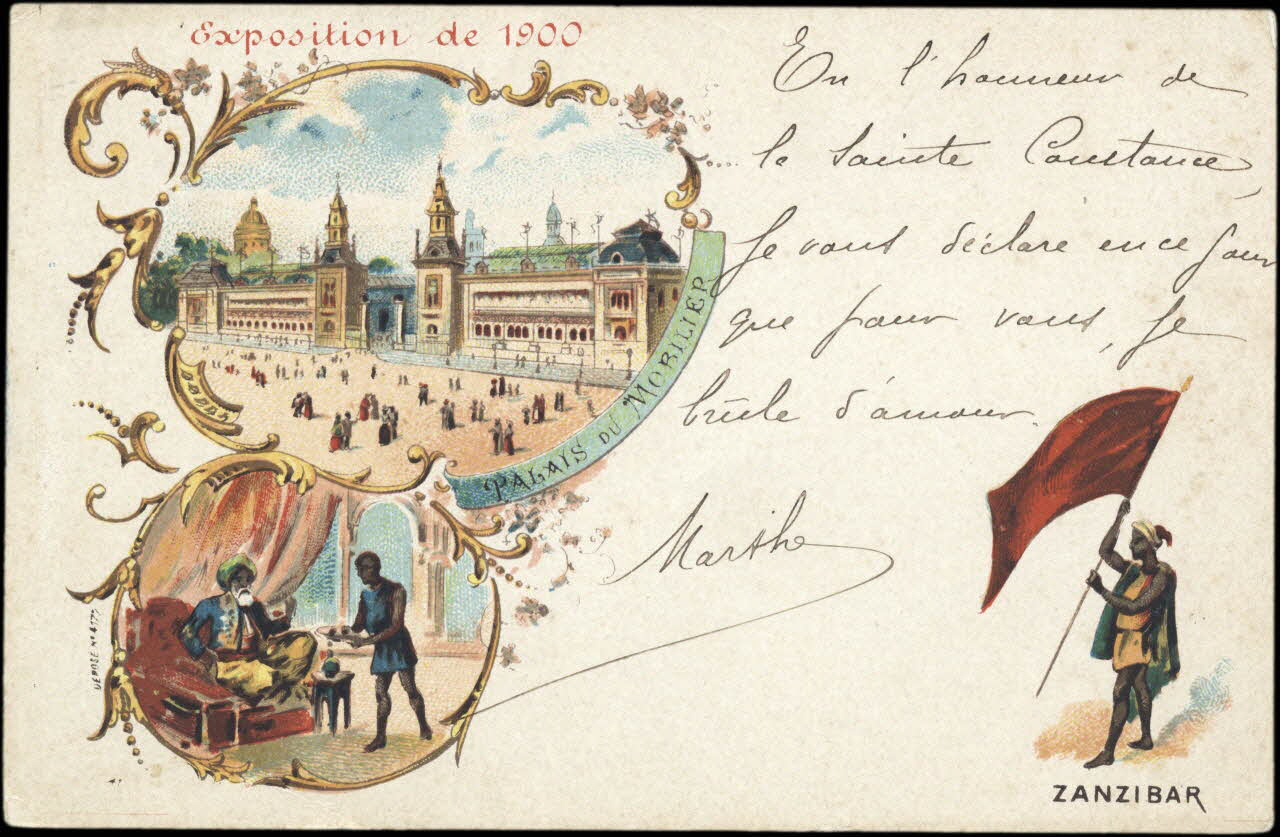 Exposition de 1900
En l'honneur de
la Sainte Constance,
Je vous déclare en ce jour
que pour vous, je
brûle d'amour.
Marthe
PALAIS DU MOBILIER
DEPOSE No 417
ZANZIBAR